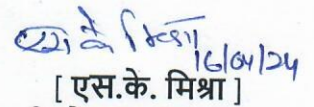 एस के मिश्रा
16/04/24
[ एस.के. मिश्रा ]